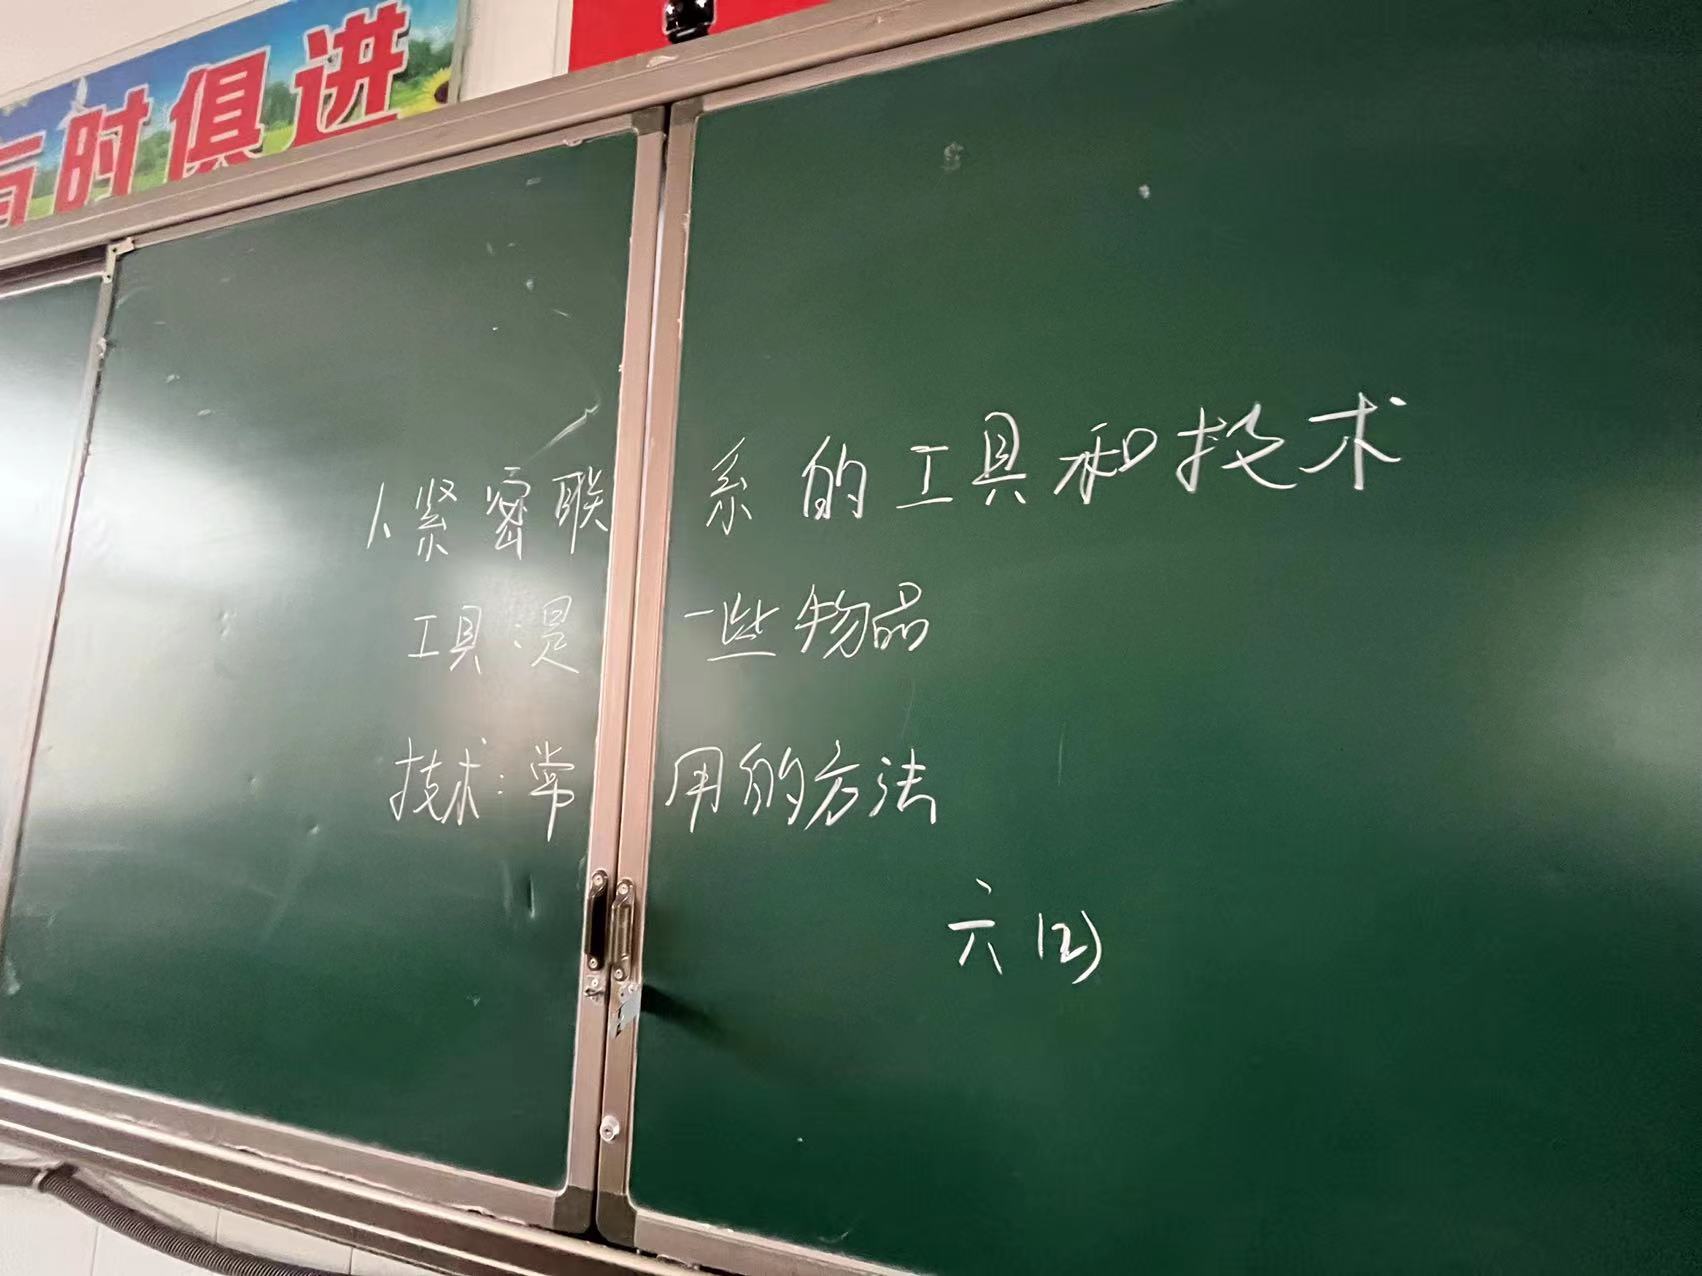 与时俱进
1、紧密联系的工具和技术
工具:是一些物品
技术:常用的方法
六(2)